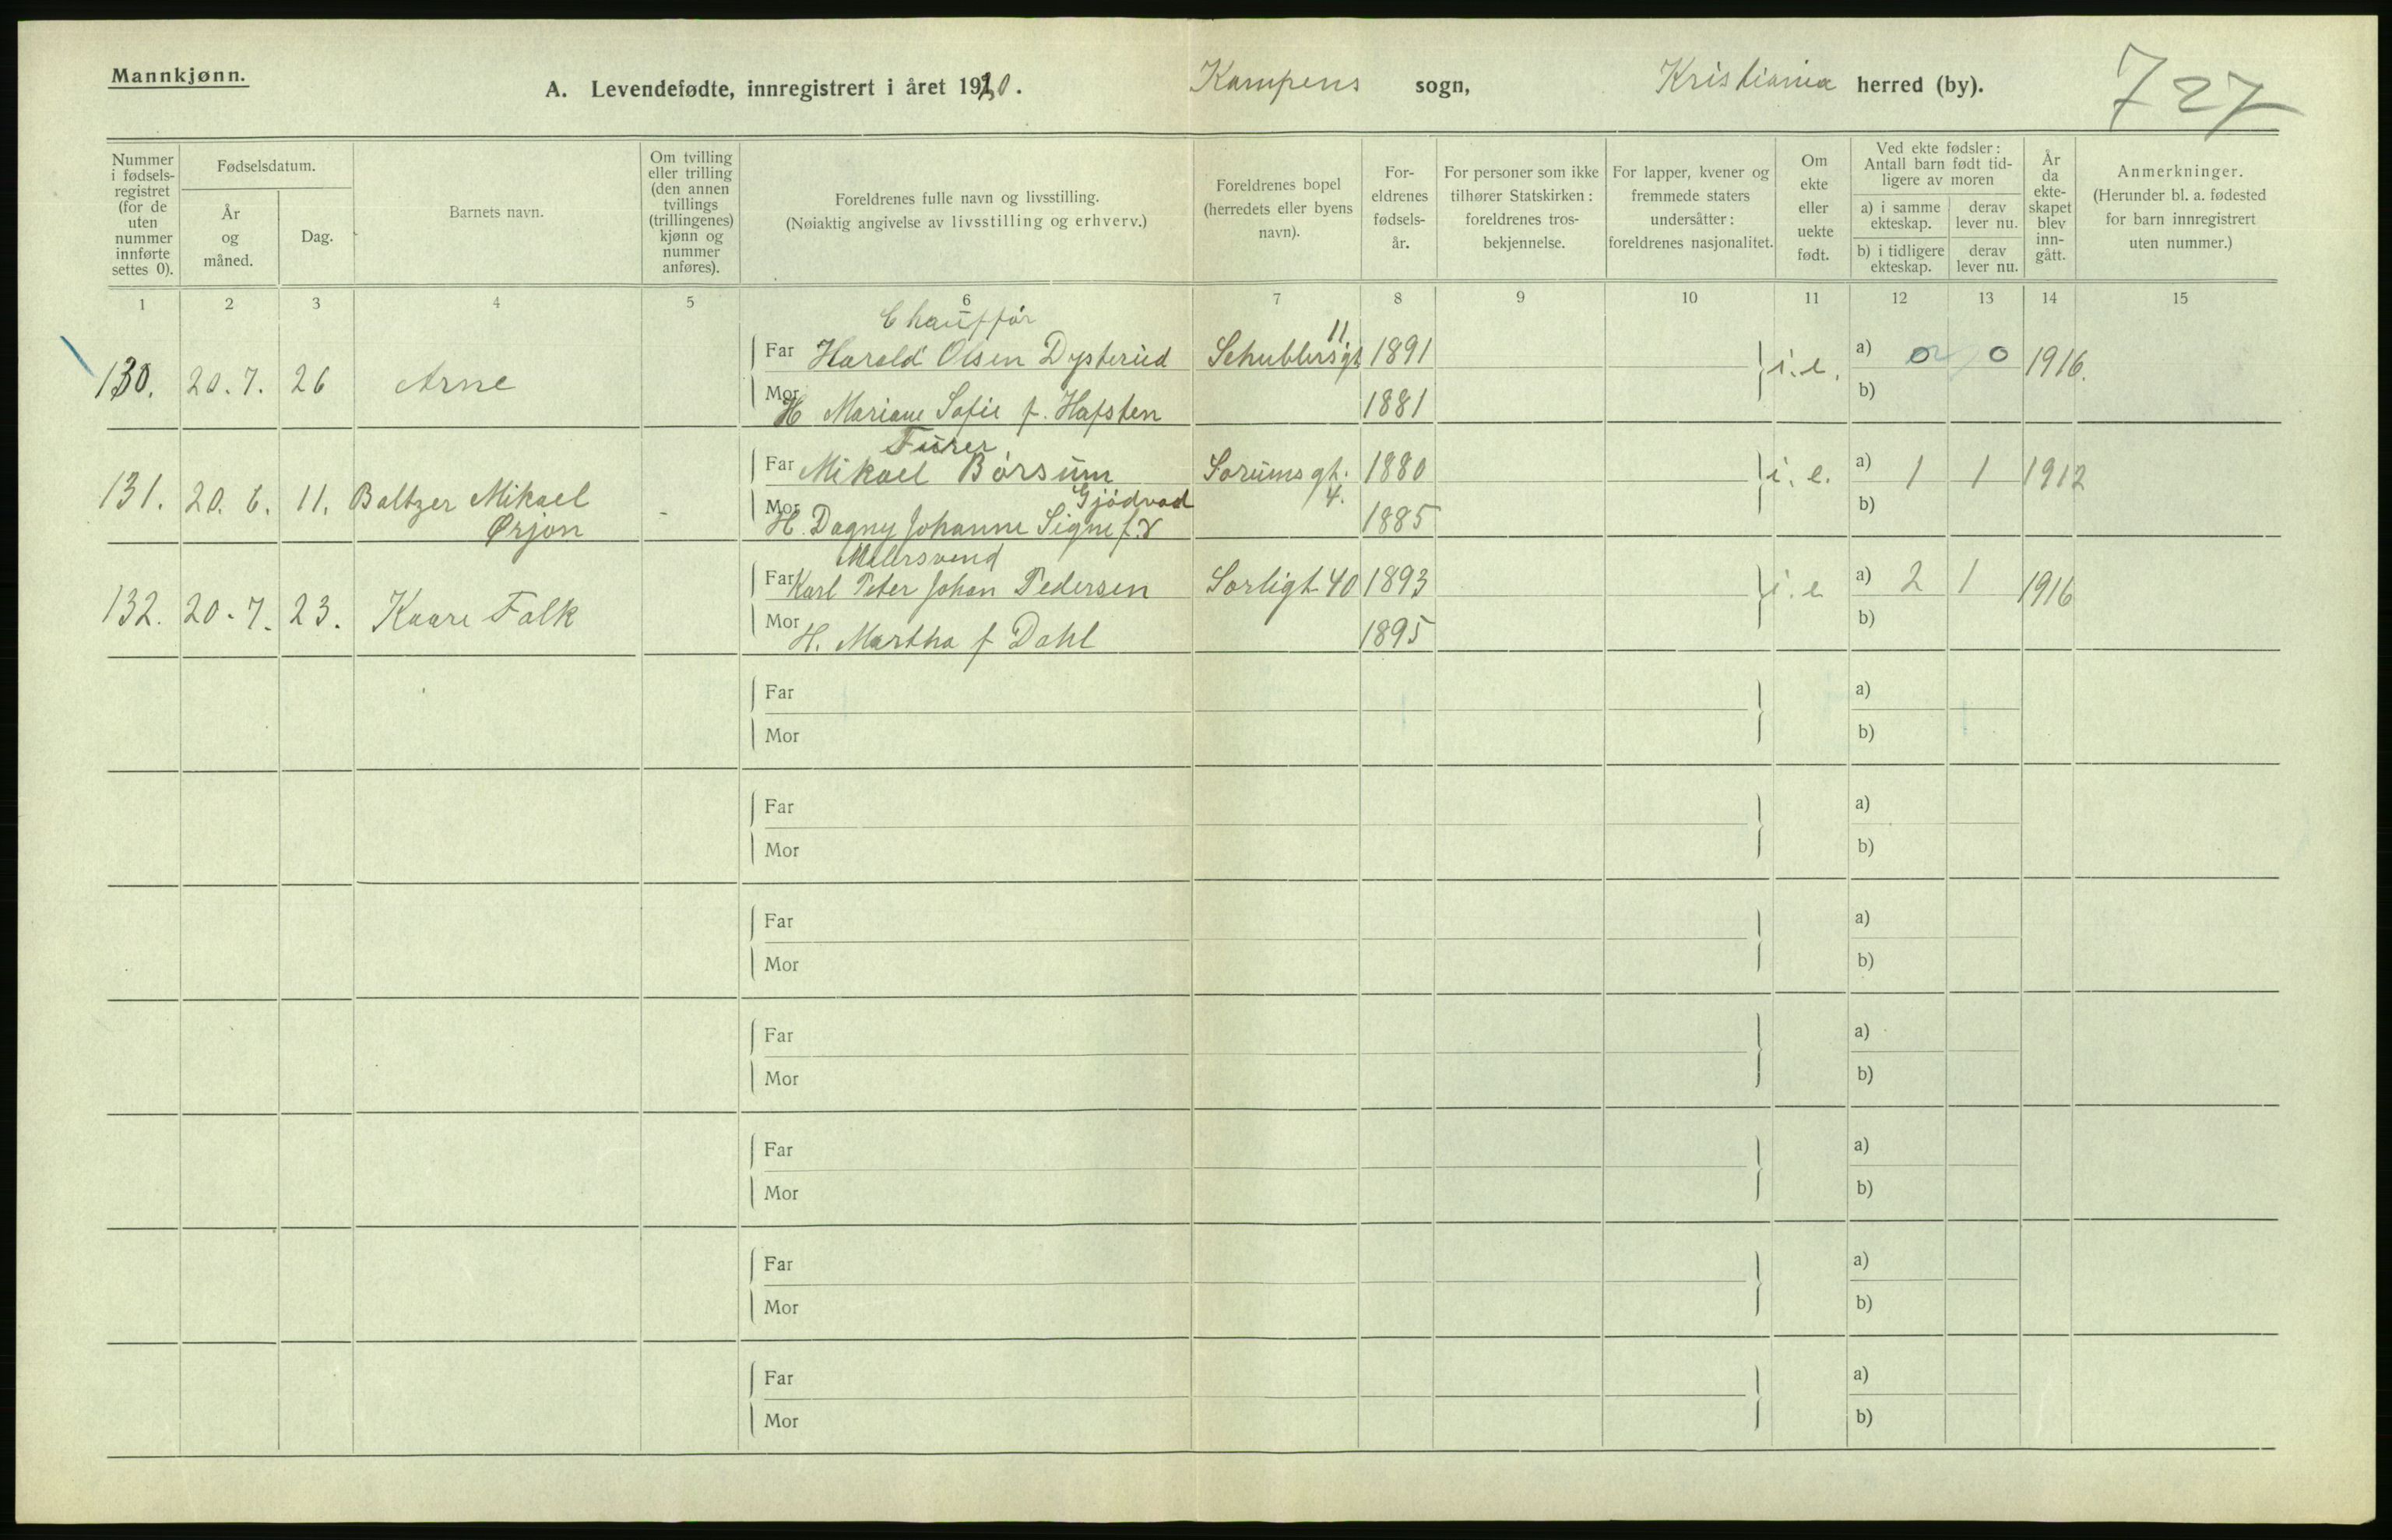 Mannkjønn.
A. Levendefødte, innregistrert i året 1920.
Kampens sogn,
Kristiania herred (by).
727
Nummer i fødsels-registret (for de uten nummer innførte settes 0).
Fødselsdatum.
År og måned.
Dag.
Barnets navn.
Om tvilling eller trilling (den annen tvillings (trillingenes) kjønn og nummer anføres).
Foreldrenes fulle navn og livsstilling.
(Nøiaktig angivelse av livsstilling og erhverv.)
Foreldrenes bopel (herredets eller byens navn).
For-eldrenes fødsels-år.
For personer som ikke tilhører Statskirken: foreldrenes tros-bekjennelse.
For lapper, kvener og fremmede staters undersåtter: foreldrenes nasjonalitet.
Om ekte eller uekte født.
Ved ekte fødsler: Antall barn født tid-ligere av moren
a) i samme ekteskap.
derav lever nu.
b) i tidligere ekteskap.
derav lever nu.
År da ekte-skapet blev inn-gått.
Anmerkninger.
(Herunder bl. a. fødested for barn innregistrert uten nummer.)
1 2 3 4 5 6 7 8 9 10 11 12 13 14 15
Chauffør
130. 20.7. 26 Arne Far Harald Olsen Dysterud Schublersgt 11 1891 i.e. a) 0 0 1916.
Mor H Mariane Sofie f. Hafsten 1881 b)
Furer
131. 20.6. 11. Baltzer Mikael Far Mikael Børsum Sorumsgt. 4. 1880 i.e. a) 1 1 1912
Ørjan - Mor H. Dagny Johanne Signe f. Gjödvad 1885 b)
Malersvend
132. 20.7. 23. Kaare Falk Far Karl Peter Johan Pedersen Sorligt 40 1893 i.e a) 2 1 1916
Mor H. Martha f Dahl 1895 b)
Far a)
Mor b)
Far a)
Mor b)
Far a)
Mor b)
Far a)
Mor b)
Far a)
Mor b)
Far a)
Mor b)
Far a)
Mor b)